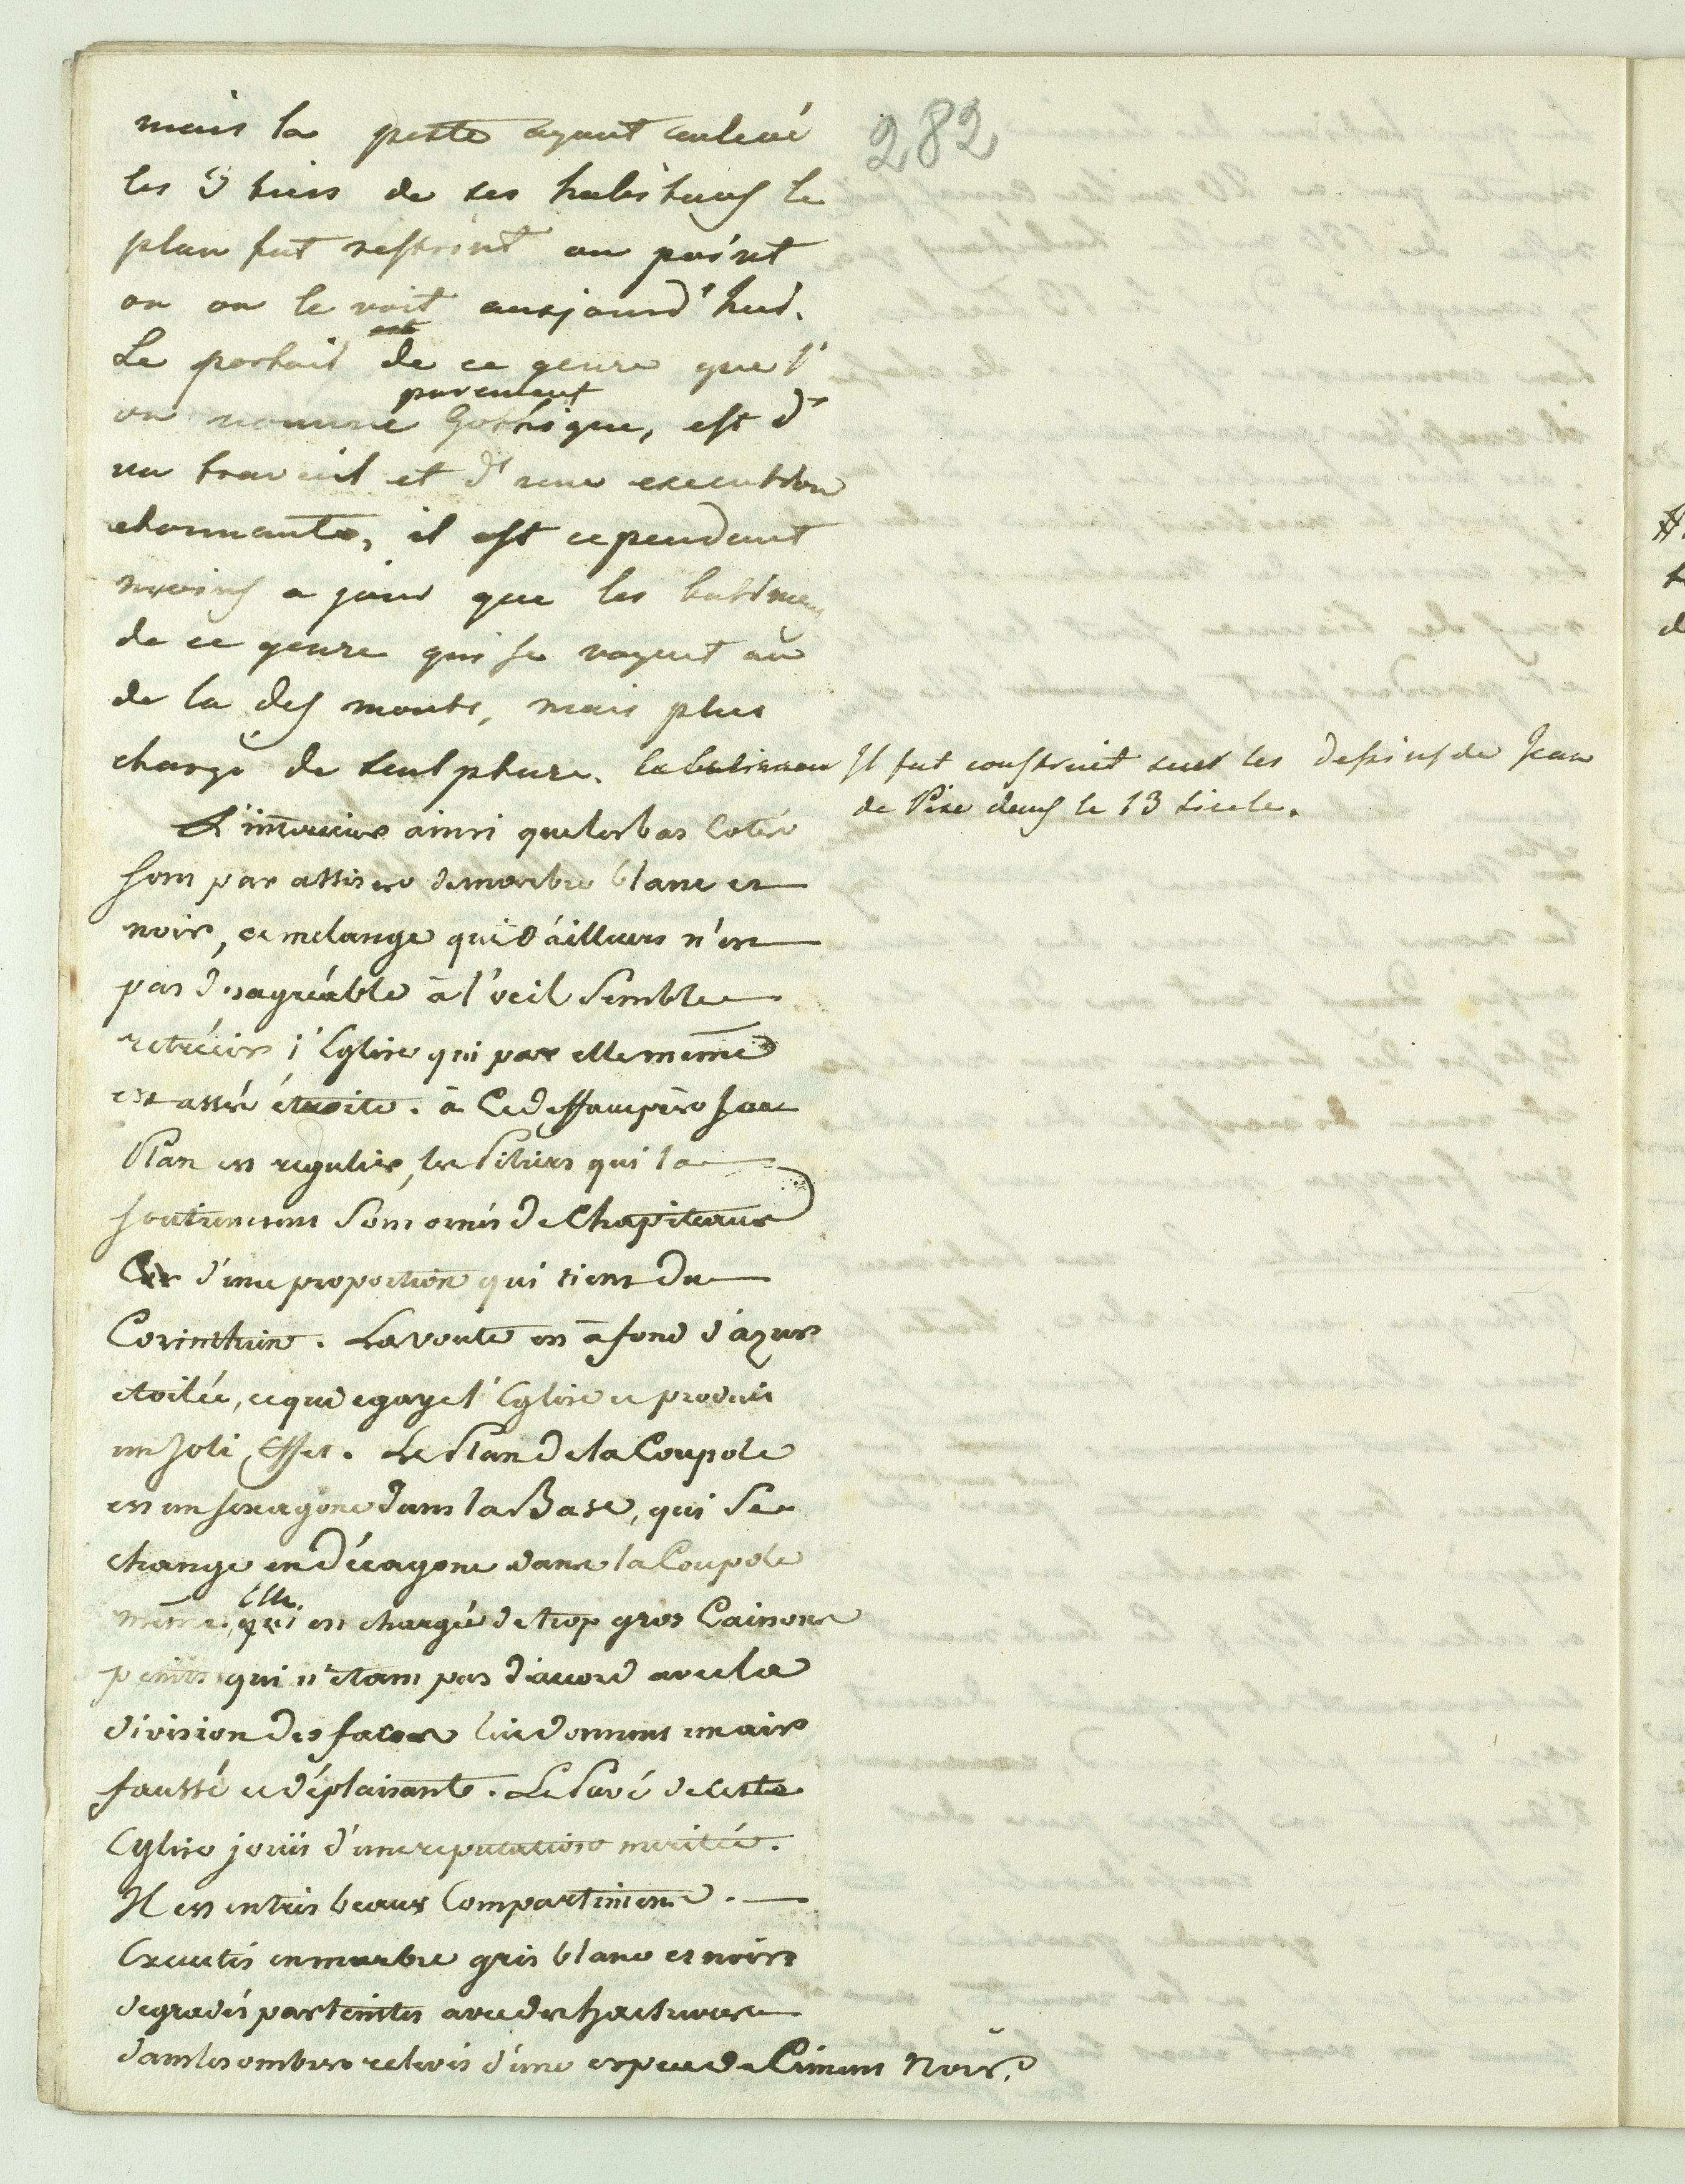 282
mais la peste ayant enlevé
les 3 tiers de ses habitans le
plan fut restrint au point
ou on le voit aujourd'hui.
Le portail est de ce genre que l'
on nomme purement Gothique, est d'
un travail et d'une execution
etonnante, il est cependant
moins a jour que les batimens
de ce genre qui se voyent au
de la des monts, mais plus
chargé de sculpture.
Il fut construit sur les dessins de Jean
de Pise dans le 13 siecle.
L'interieur ainsi que les bas Cotés
sont par assises de marbre blanc et
noir, ce melange qui d'ailleurs n'est
pas désagréable à l'oeil semble
retrécir l'Eglise qui par elle même
est assés étroite. à Ce deffaut près son
Plan est regulier, les Piliers qui la
soutiennent sont ornés de Chapiteaux
d'une proportion qui tient du
Corinthien. La voute est à fond d'azur
etoilée, ce qui egaye l'Eglise et produit
un joli Effet. Le Plan de la Coupole
est un hexagone dans la Base, qui se
change en Décagone dans la Coupole
même, Elle est chargée de trop gros Caissons
peints qui n'etant pas d'accord avec la
division des faces lui donnent un air
faussé et déplaisant. Le Pavé de cette
Eglise jouit d'une reputation meritée.
Il est en très beaux Compartimens.
Executés en marbre gris blanc et noir
degradés par teintes avec des hachures
dans les ombres relevés d'une espece de Ciment Noir.